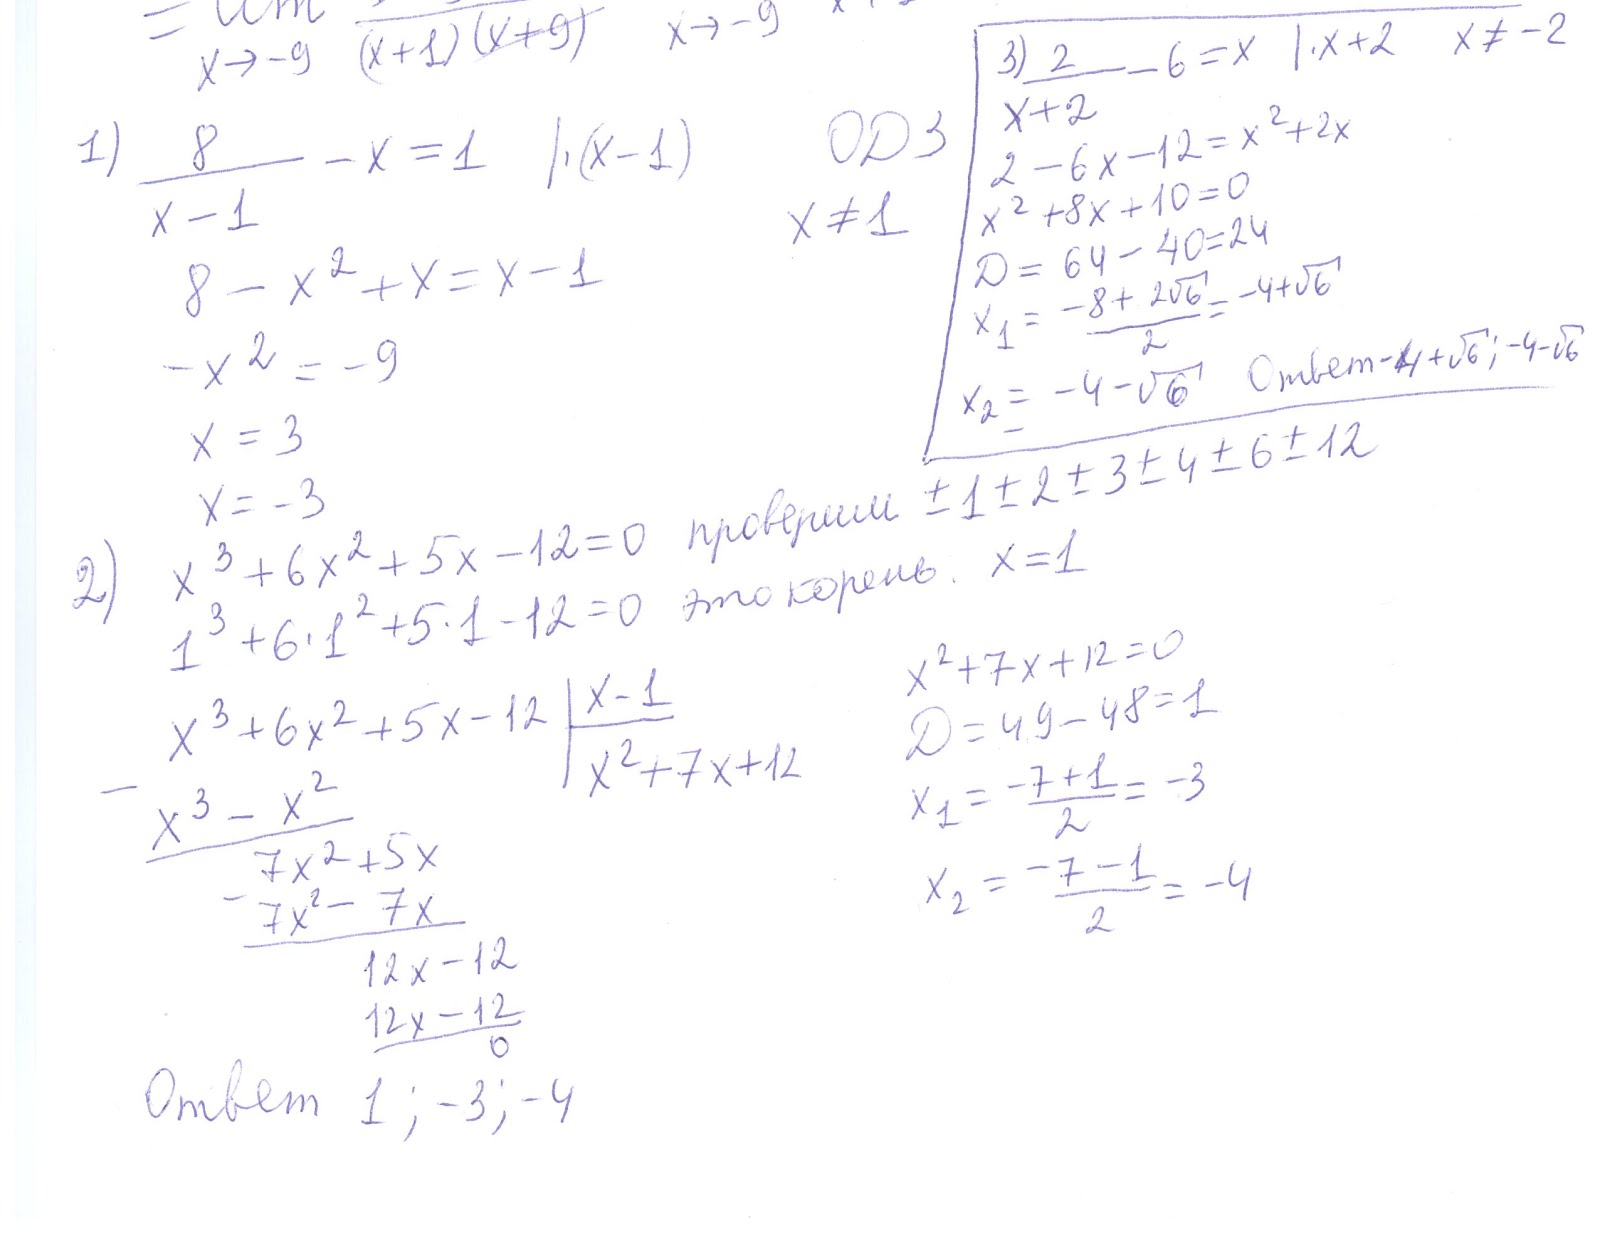 x→-9 (x+1)(x+9) x→-9
1) 8/(x-1) - x = 1 |·(x-1)
ОДЗ
x≠1
8 - x² + x = x - 1
-x² = -9
x = 3
x = -3
3) 2/(x+2) - 6 = x |·x+2 x≠-2
2 - 6x - 12 = x² + 2x
x² + 8x + 10 = 0
D = 64 - 40 = 24
x₁ = (-8 + 2√6)/2 = -4+√6
x₂ = -4-√6 Ответ -4+√6; -4-√6
2) x³ + 6x² + 5x - 12 = 0 проверим ±1 ±2 ±3 ±4 ±6 ±12
1³ + 6·1² + 5·1 - 12 = 0 это корень. x = 1
x³ + 6x² + 5x - 12 | x-1
x² + 7x + 12
- x³ - x²
7x² + 5x
- 7x² - 7x
12x - 12
12x - 12
0
x² + 7x + 12 = 0
D = 49 - 48 = 1
x₁ = (-7+1)/2 = -3
x₂ = (-7-1)/2 = -4
Ответ 1; -3; -4